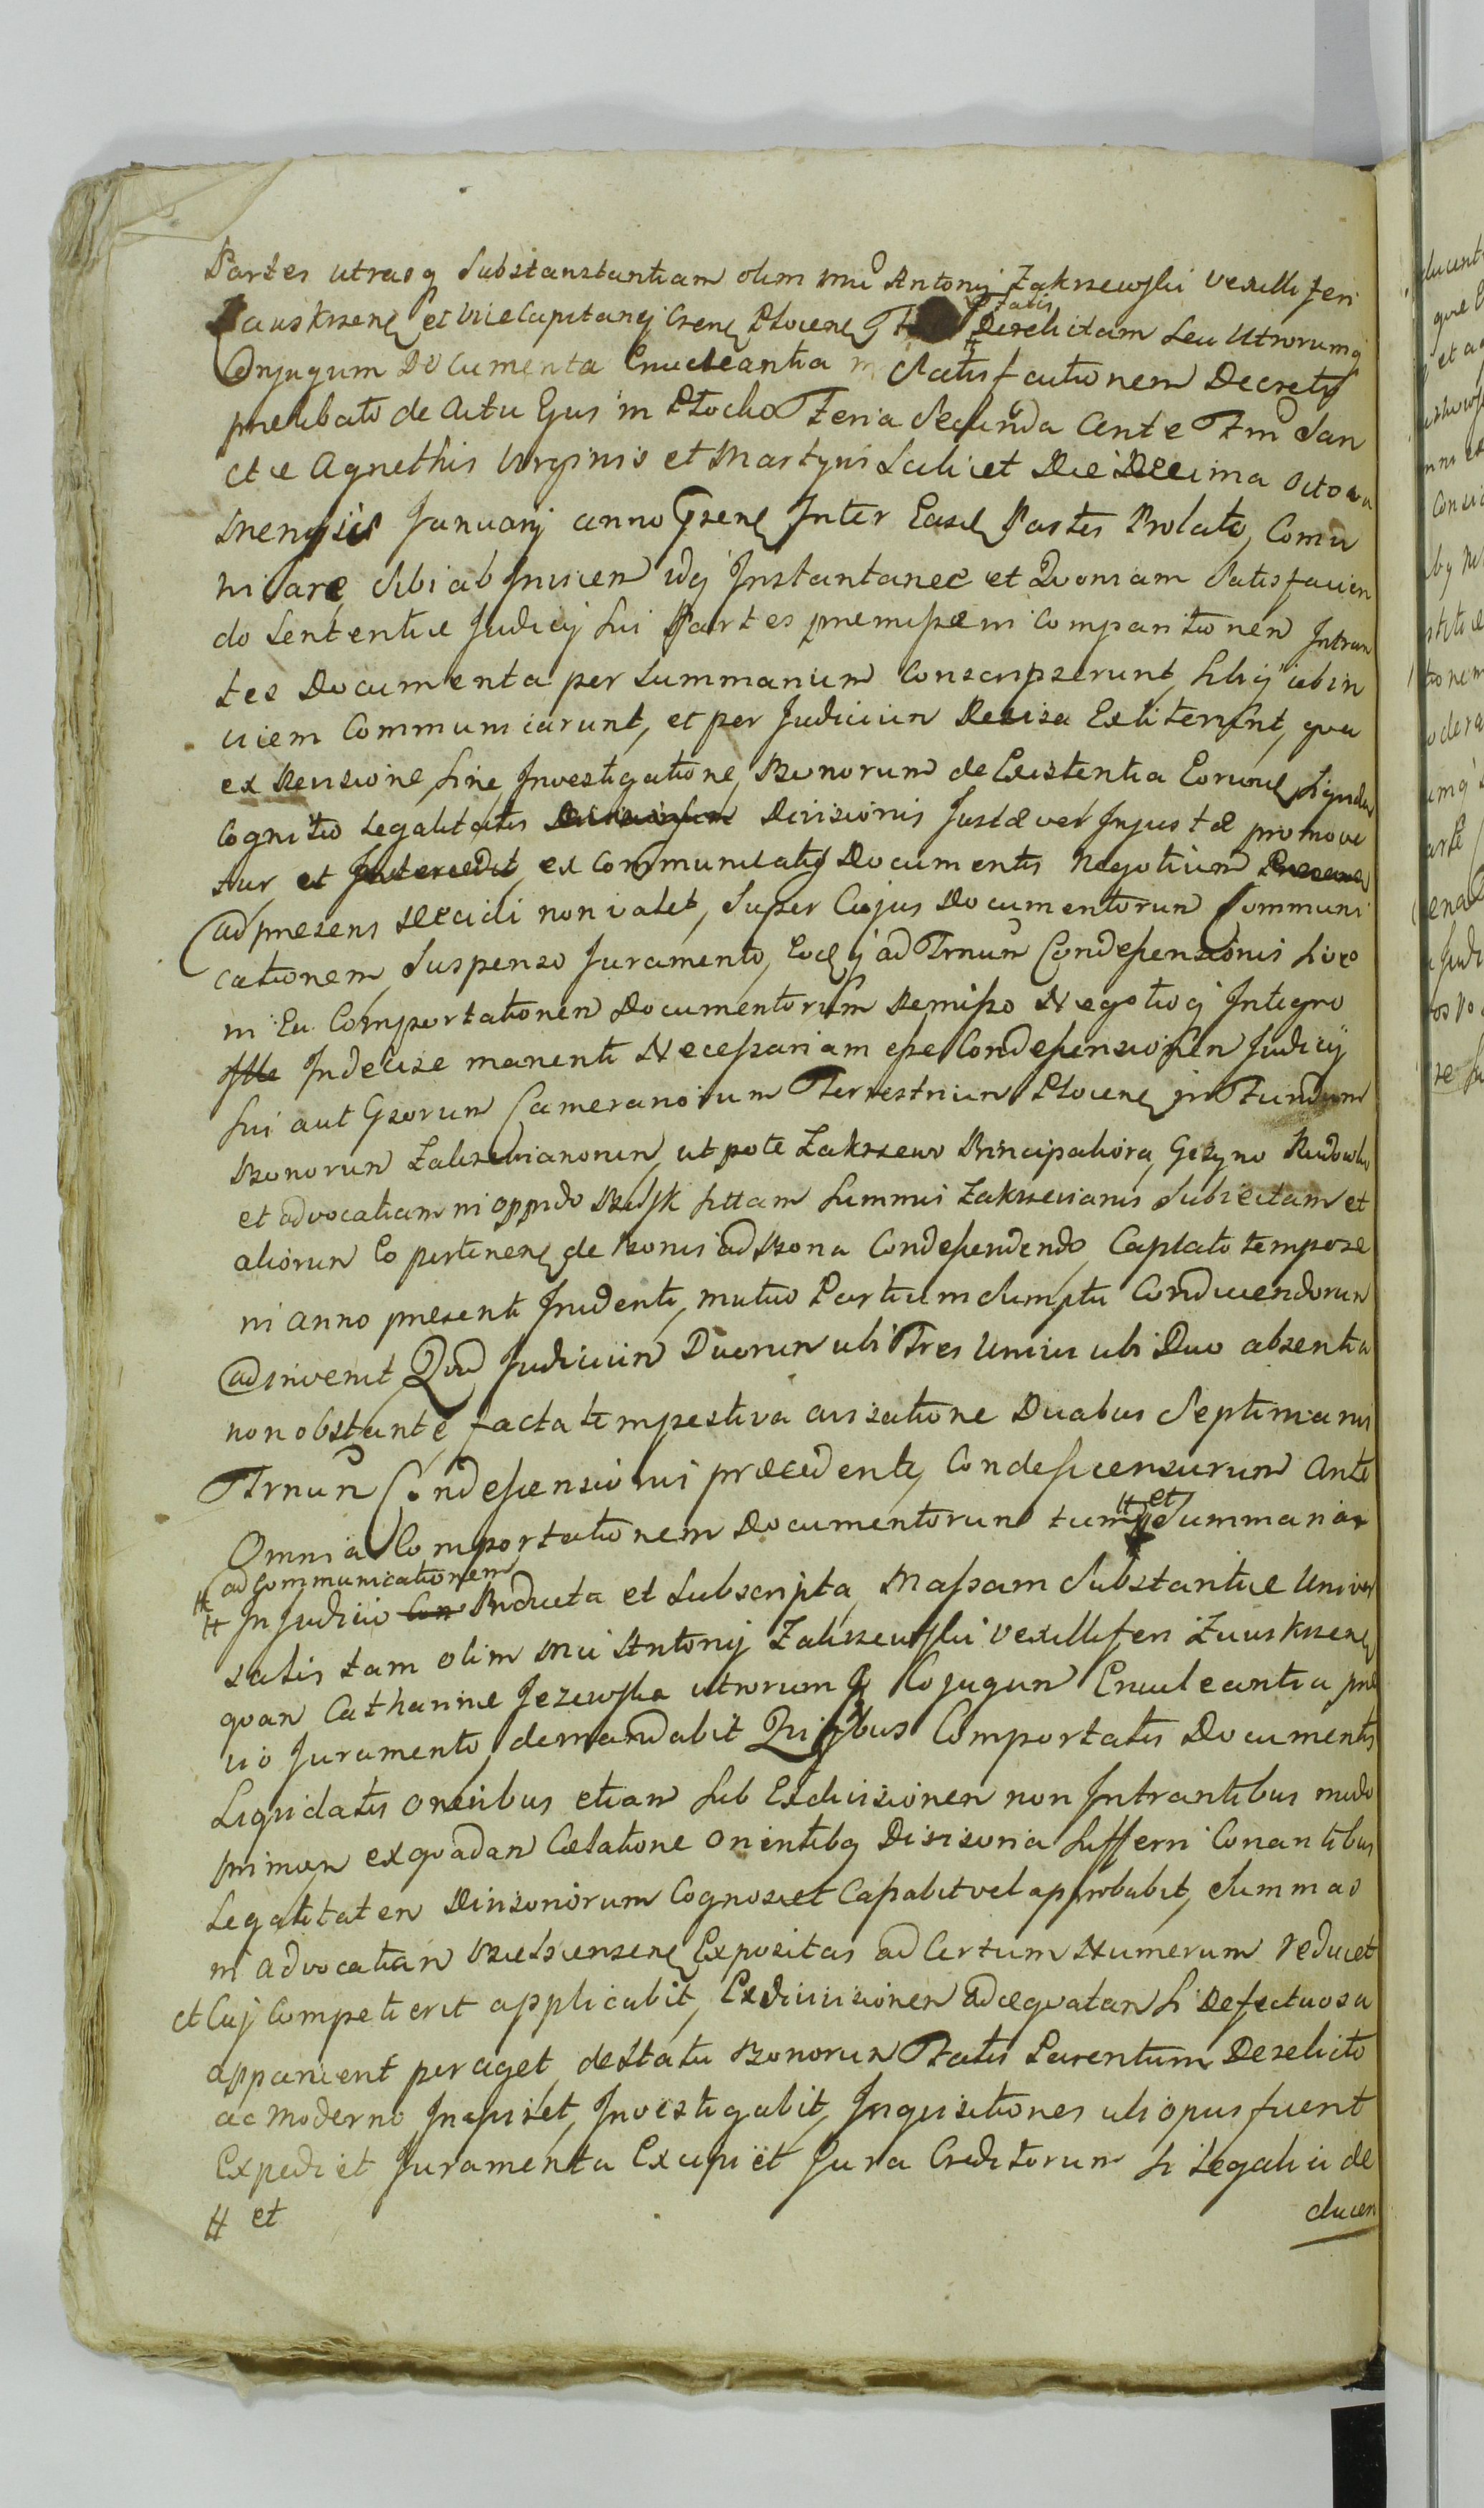 Partes utrasq Substanstantiam olim Mci Antonij Zakrzewski Vexilliferi
Zauskrzens et ViceCapitanej Crens Plocens Fatis Derelictam seu Utrorumq
Conjugum Documenta Enucleantia in Satisfactionem Decretis
prelibato de Actu Ejus in Plocko Feria Secunda Ante Ftm San
ctæ Agnethis Virginis et Martyris Scilicet Die Decima Octava
Mensis Januarij anno Prens Inter Easd Partes Prolato, Comu
nicare, sibi ab Invicem idq Instantanee et Quoniam Satisfacien
do Sententiæ Judicij sui Partes præmissæ in Comparitionem Intran
tes Documenta per Summarium Conscripserunt, sibiq ab in
vicem Communicarunt, et per Judicium Revisa Extiterunt, qua
ex Revisione, sine Investigatione, Bonorum de Existentia Eorund, siquidem
Cognitio Legalitatis Divisionis Justæ vel Injustæ promove
tur, et Intercedit, ex Communicatis Documentis Negotium
ad presens Decidi non valet, Super Cujus Documentorum Communi
cationem, Suspenso Juramento, Eoq ad Trnum Condescensionis Loco
in Eu Comportationem Documentorum Remisso Negotioq Integro
Indecise manenti Necessariam esse Condescensionem Judicij
sui aut Gsorum Camerariorum Terrestrium Plocens in Fundum
Bonorum Zakrzevianorum, utpote Zakrzewo Principaliora, Gozyno Rudowko
et advocatiam in oppido Bielsk sittam Summis Zakrzevianis Subiectam et
aliorum Eo pertinens de Bonis ad Bona Condescendendo, Captato tempore
in Anno presenti Incidenti, mutuo Partium Sumptu Conducendorum
adinvenit Quod Judicium Duorum ubi Tres Unius ubi Duo absentia
non obstante, facta tempestiva avisatione Duabus Septimanis
Trnum Condescensionis præcedentq Condescensurum Ante
Omnia Comportationem Documentorum tum # et Summaria
# ad Communicationem
# In Judicio Con Producta et Subscripta, Massam Substantiæ Univer
salis tam olim Mci Antonij Zakrzewski Vexilliferi Zauskrzens
quam Catharinæ Jezewska utrorumq Cojugum Enucleantia præ
vio Juramento, demandabit Quibus Comportatis Documentis
Liquidatis oneribus etiam sub Exdivisionem non Intrantibus modo
primum ex quadam Cælatione orientibq Divisoria Sifferri Conantibus
Legalitatem Divisoriorum Cognoscet Cassabit vel approbabit, Summas
in advocatiam Bielscensens Expositas ad Certum Numerum reducet
et Cuj Competierit applicabit, Exdivisionem adæquatam si Defectuosa
apparuerit peraget, de Statu Bonorum Fatis Parentum Derelicto
ac Moderno Inspiciet, Investigabit, Inquisitiones ubi opus fuerit
Expediet Juramenta Excipiet Jura Creditorum si Legaliu de
# et
ducen